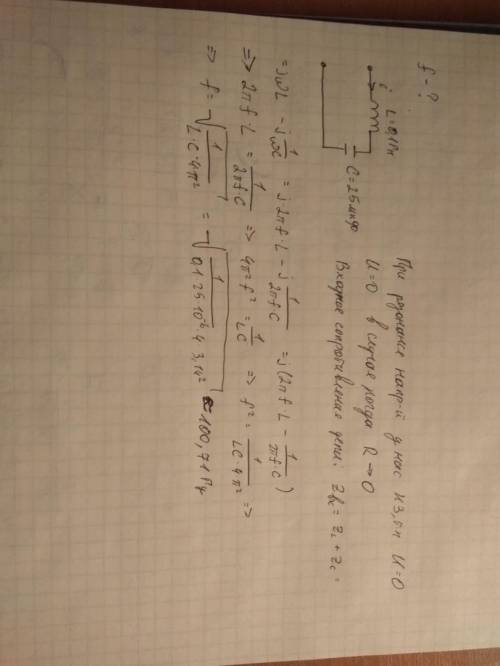 f - ?
i L=0,1Гн
C = 25 мкф
При резонансе напр-й у нас КЗ, т.к U=0
U=0 в случае когда R → 0
Входное сопротивление цепи: Zвх = ZL + ZC =
= jωL - j 1/ωC = j·2πf·L - j 1/2πf·C = j(2πf·L - 1/2πf·C)
=> 2πf·L = 1/2πf·C => 4π²f² = 1/LC => f² = 1/LC·4π² =>
=> f = √1/L·C·4π² = √1/0,1·25·10⁻⁶·4·3,14² ≈ 100,71 Гц